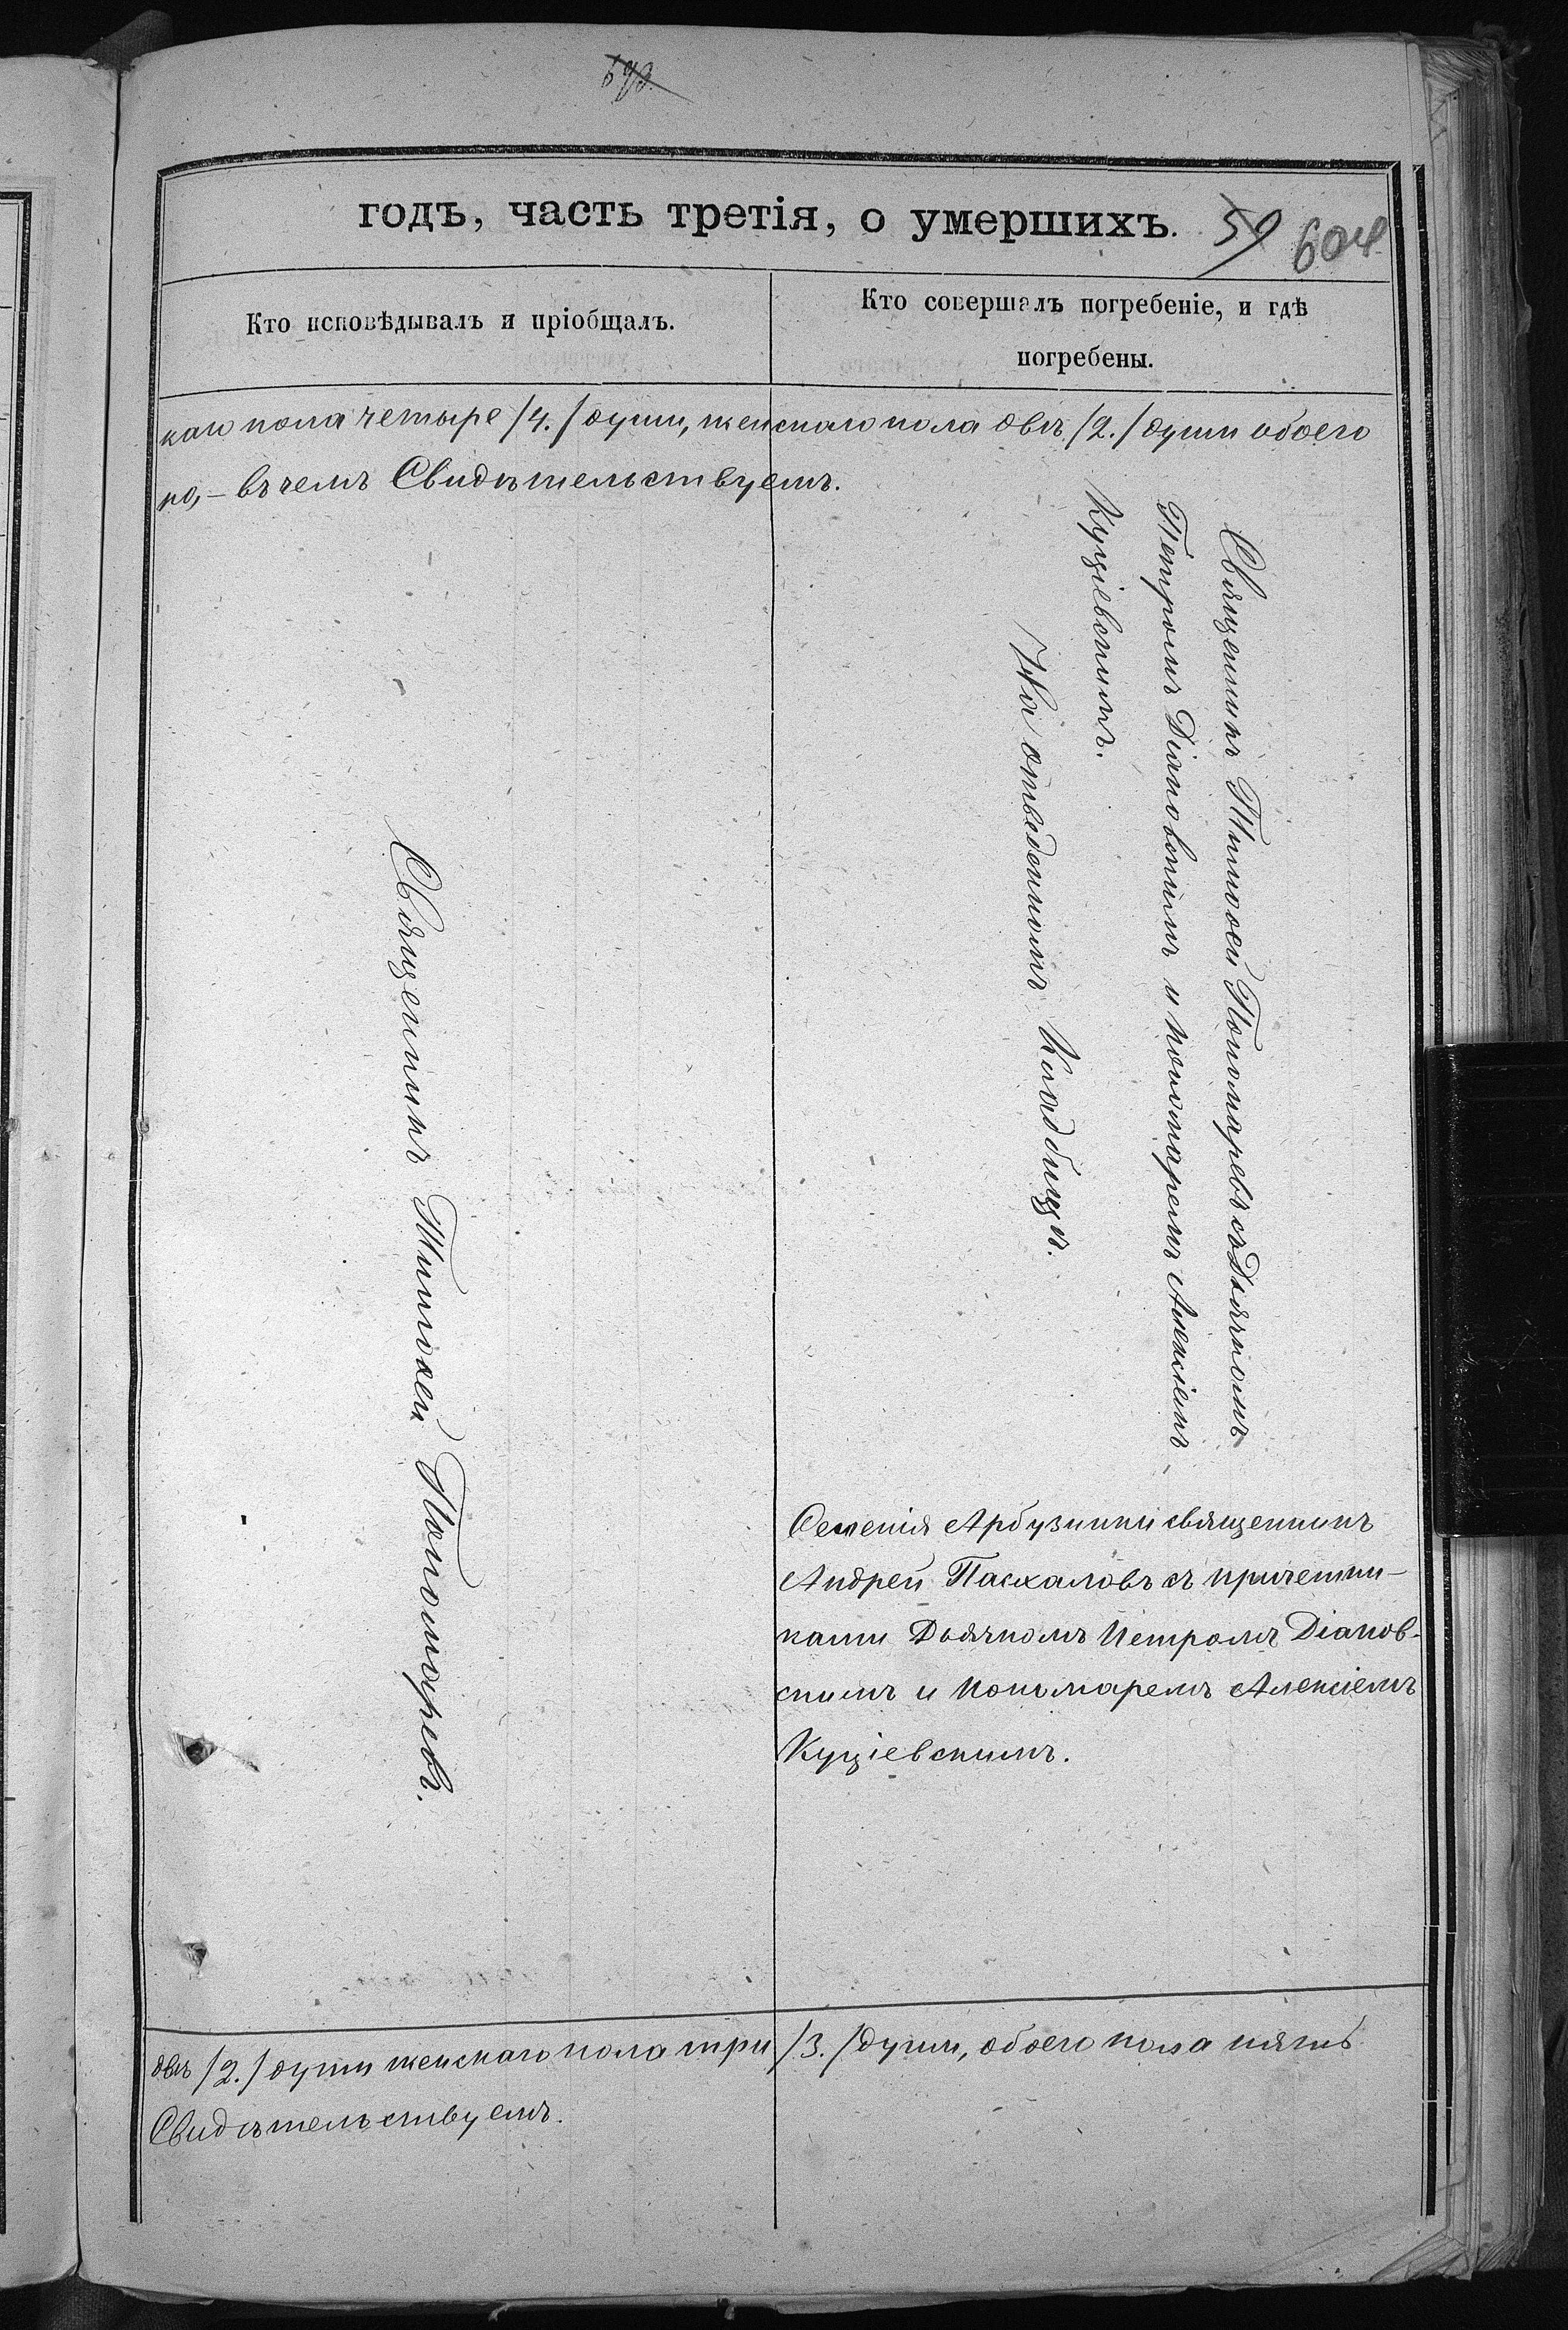 593.
годъ, часть третія, о умершихъ.
59 604
Кто исповѣдывалъ и пріобщалъ.
Кто совершалъ погребеніе, и гдѣ
погребены.
каго пола четыре /4./ души, женскаго пола двѣ /2./ души обоего
по,- въ чемъ Свидѣтельствуемъ.
Священникъ Тимоѳей Пономаревъ.
Священникъ Тимоѳей Пономаревъ съ Дьячкомъ
Петромъ Діановскимъ и пономаремъ Алексіемъ
Куціевскимъ.
На отведенномъ Кладбищѣ.
Селенія Арбузинки священникъ
Андрей Пасхаловъ съ причетни-
ками Дьячкомъ Петромъ Діанов-
скимъ и Пономаремъ Алексіемъ
Куціевскимъ.
двѣ /2./ души женскаго пола три /3./ души, обоего пола пять
Свидѣтельствуемъ.